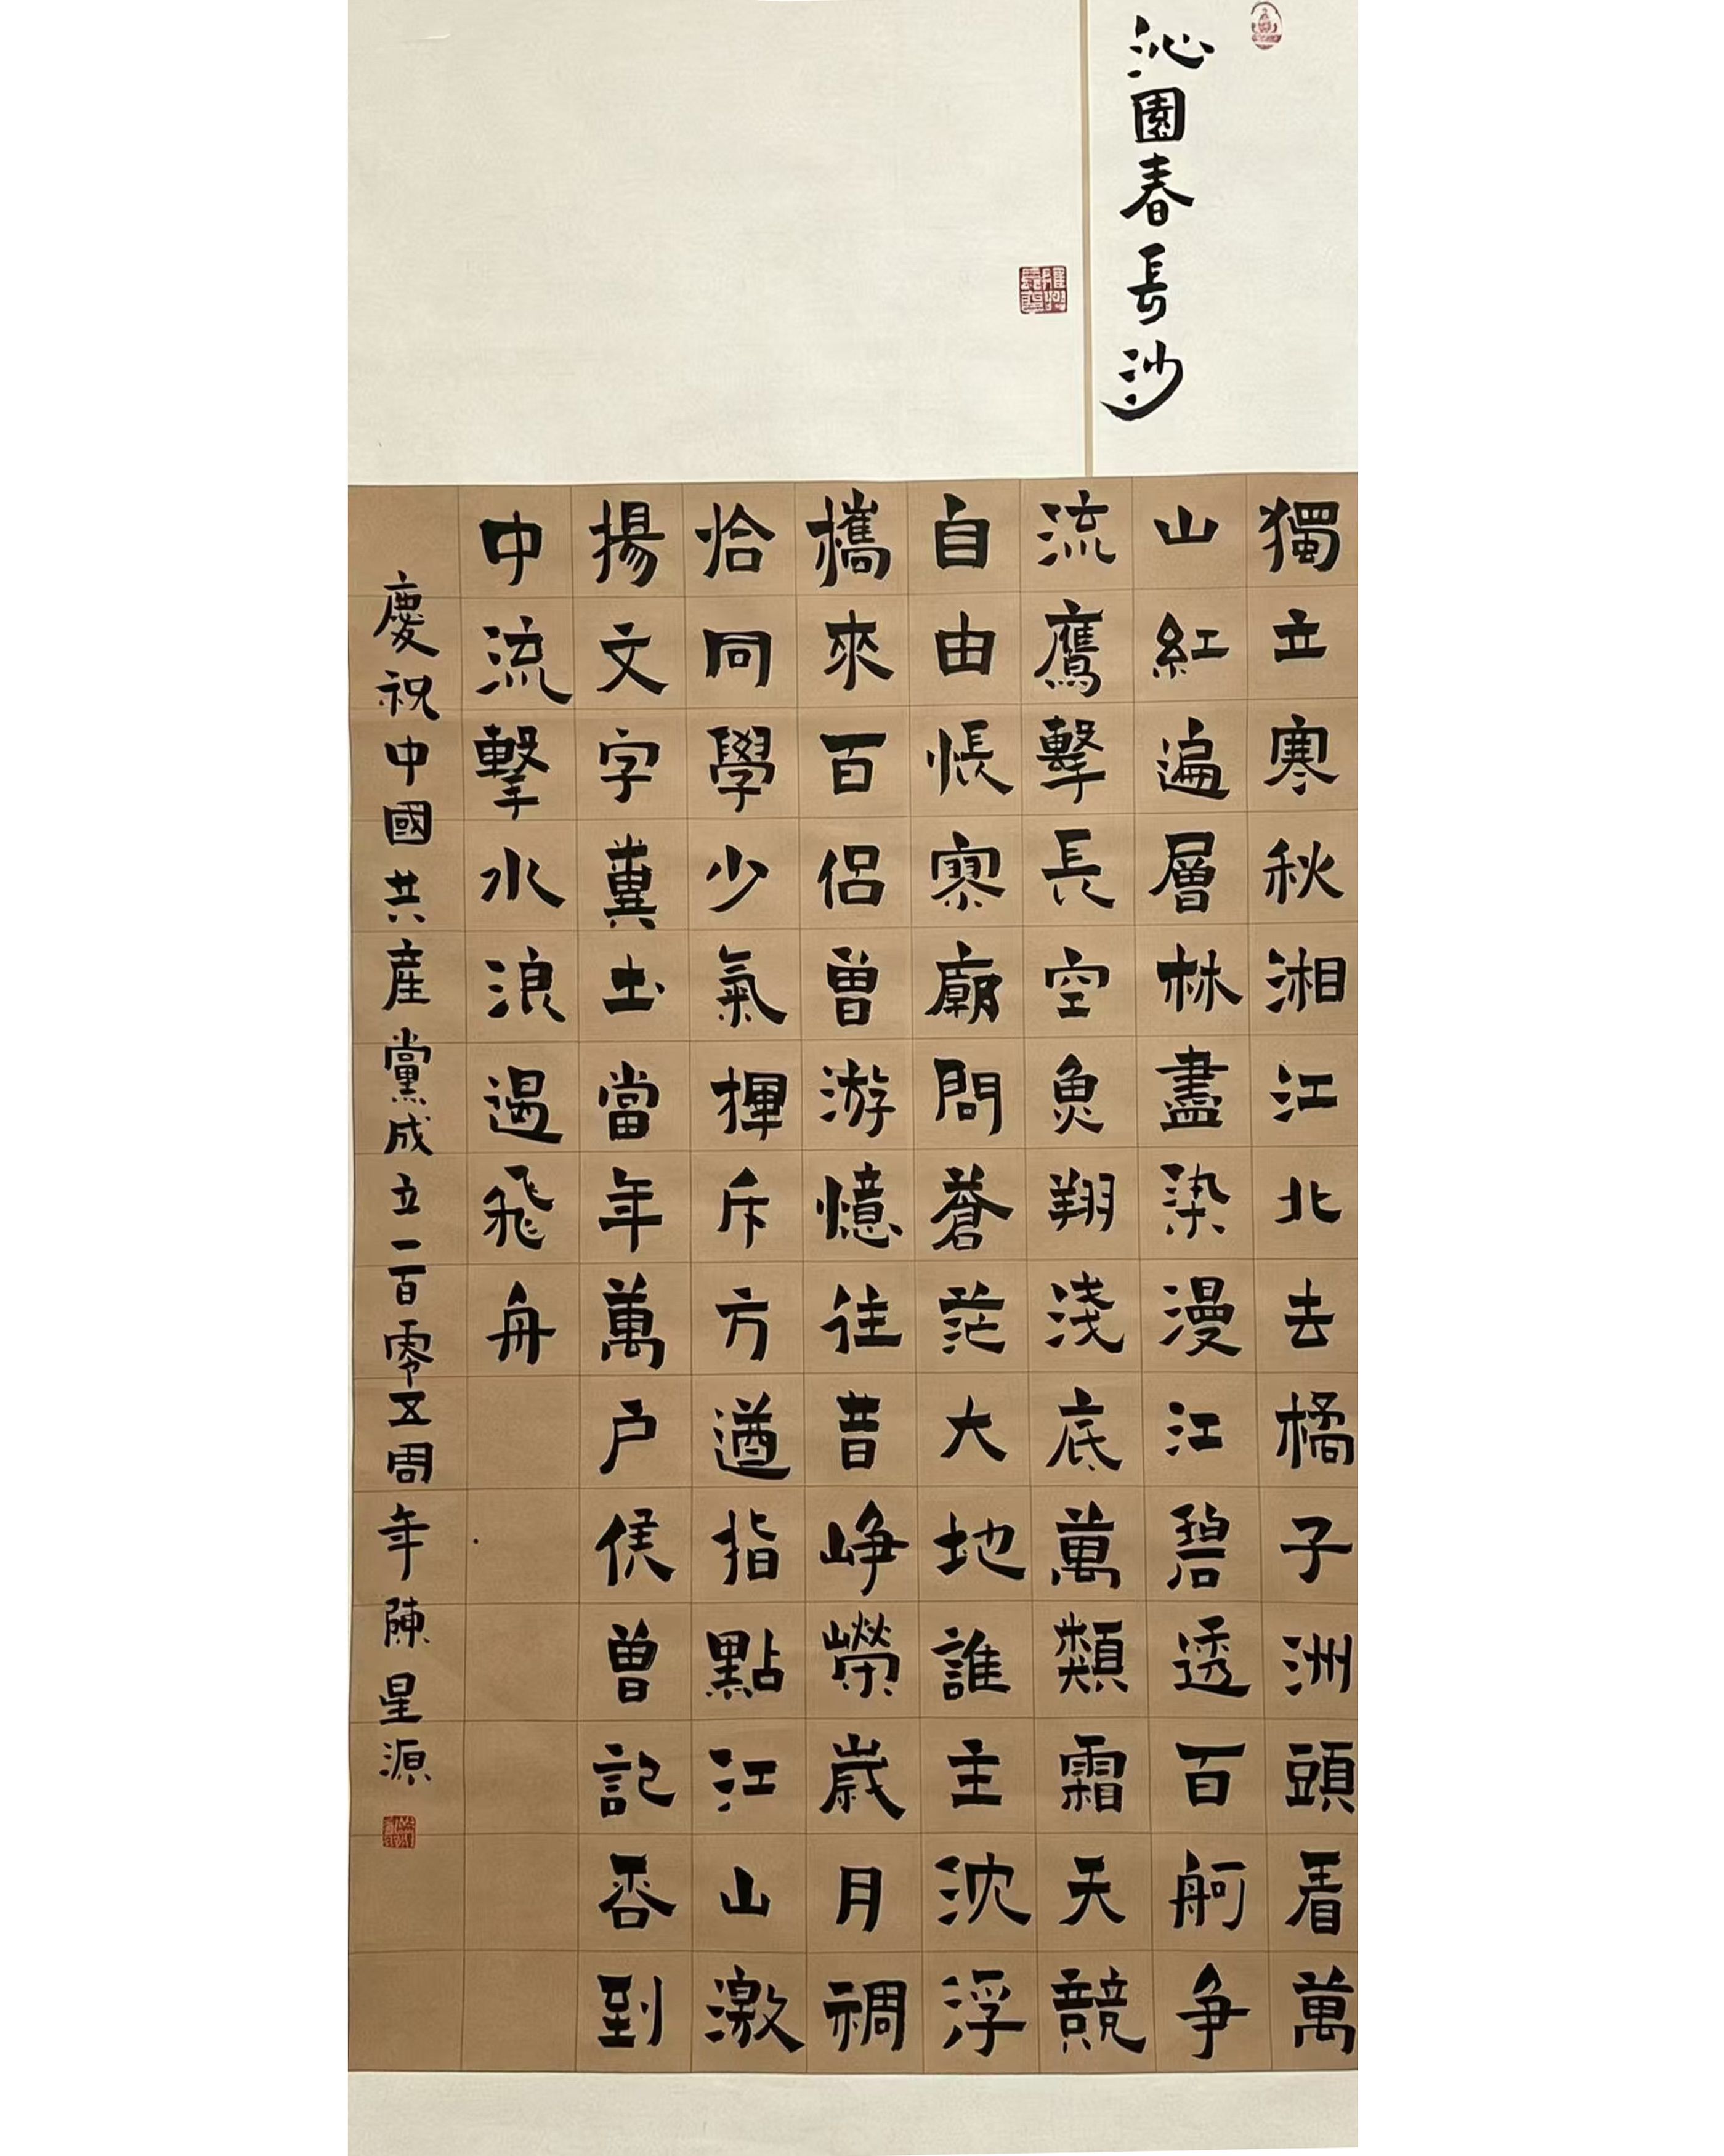 沁園春長沙
獨立寒秋湘江北去橘子洲頭看萬
山紅遍層林盡染漫江碧透百舸争
流鷹擊長空魚翔淺底萬類霜天競
自由悵寥廓問蒼茫大地誰主沈浮
攜來百侣曾游憶往昔峥嶸歲月稠
恰同學少氣揮斥方遒指點江山激
揚文字糞土當年萬户侯曾記否到
中流擊水浪遏飛舟
慶祝中國共産黨成立一百零五周年陳星源